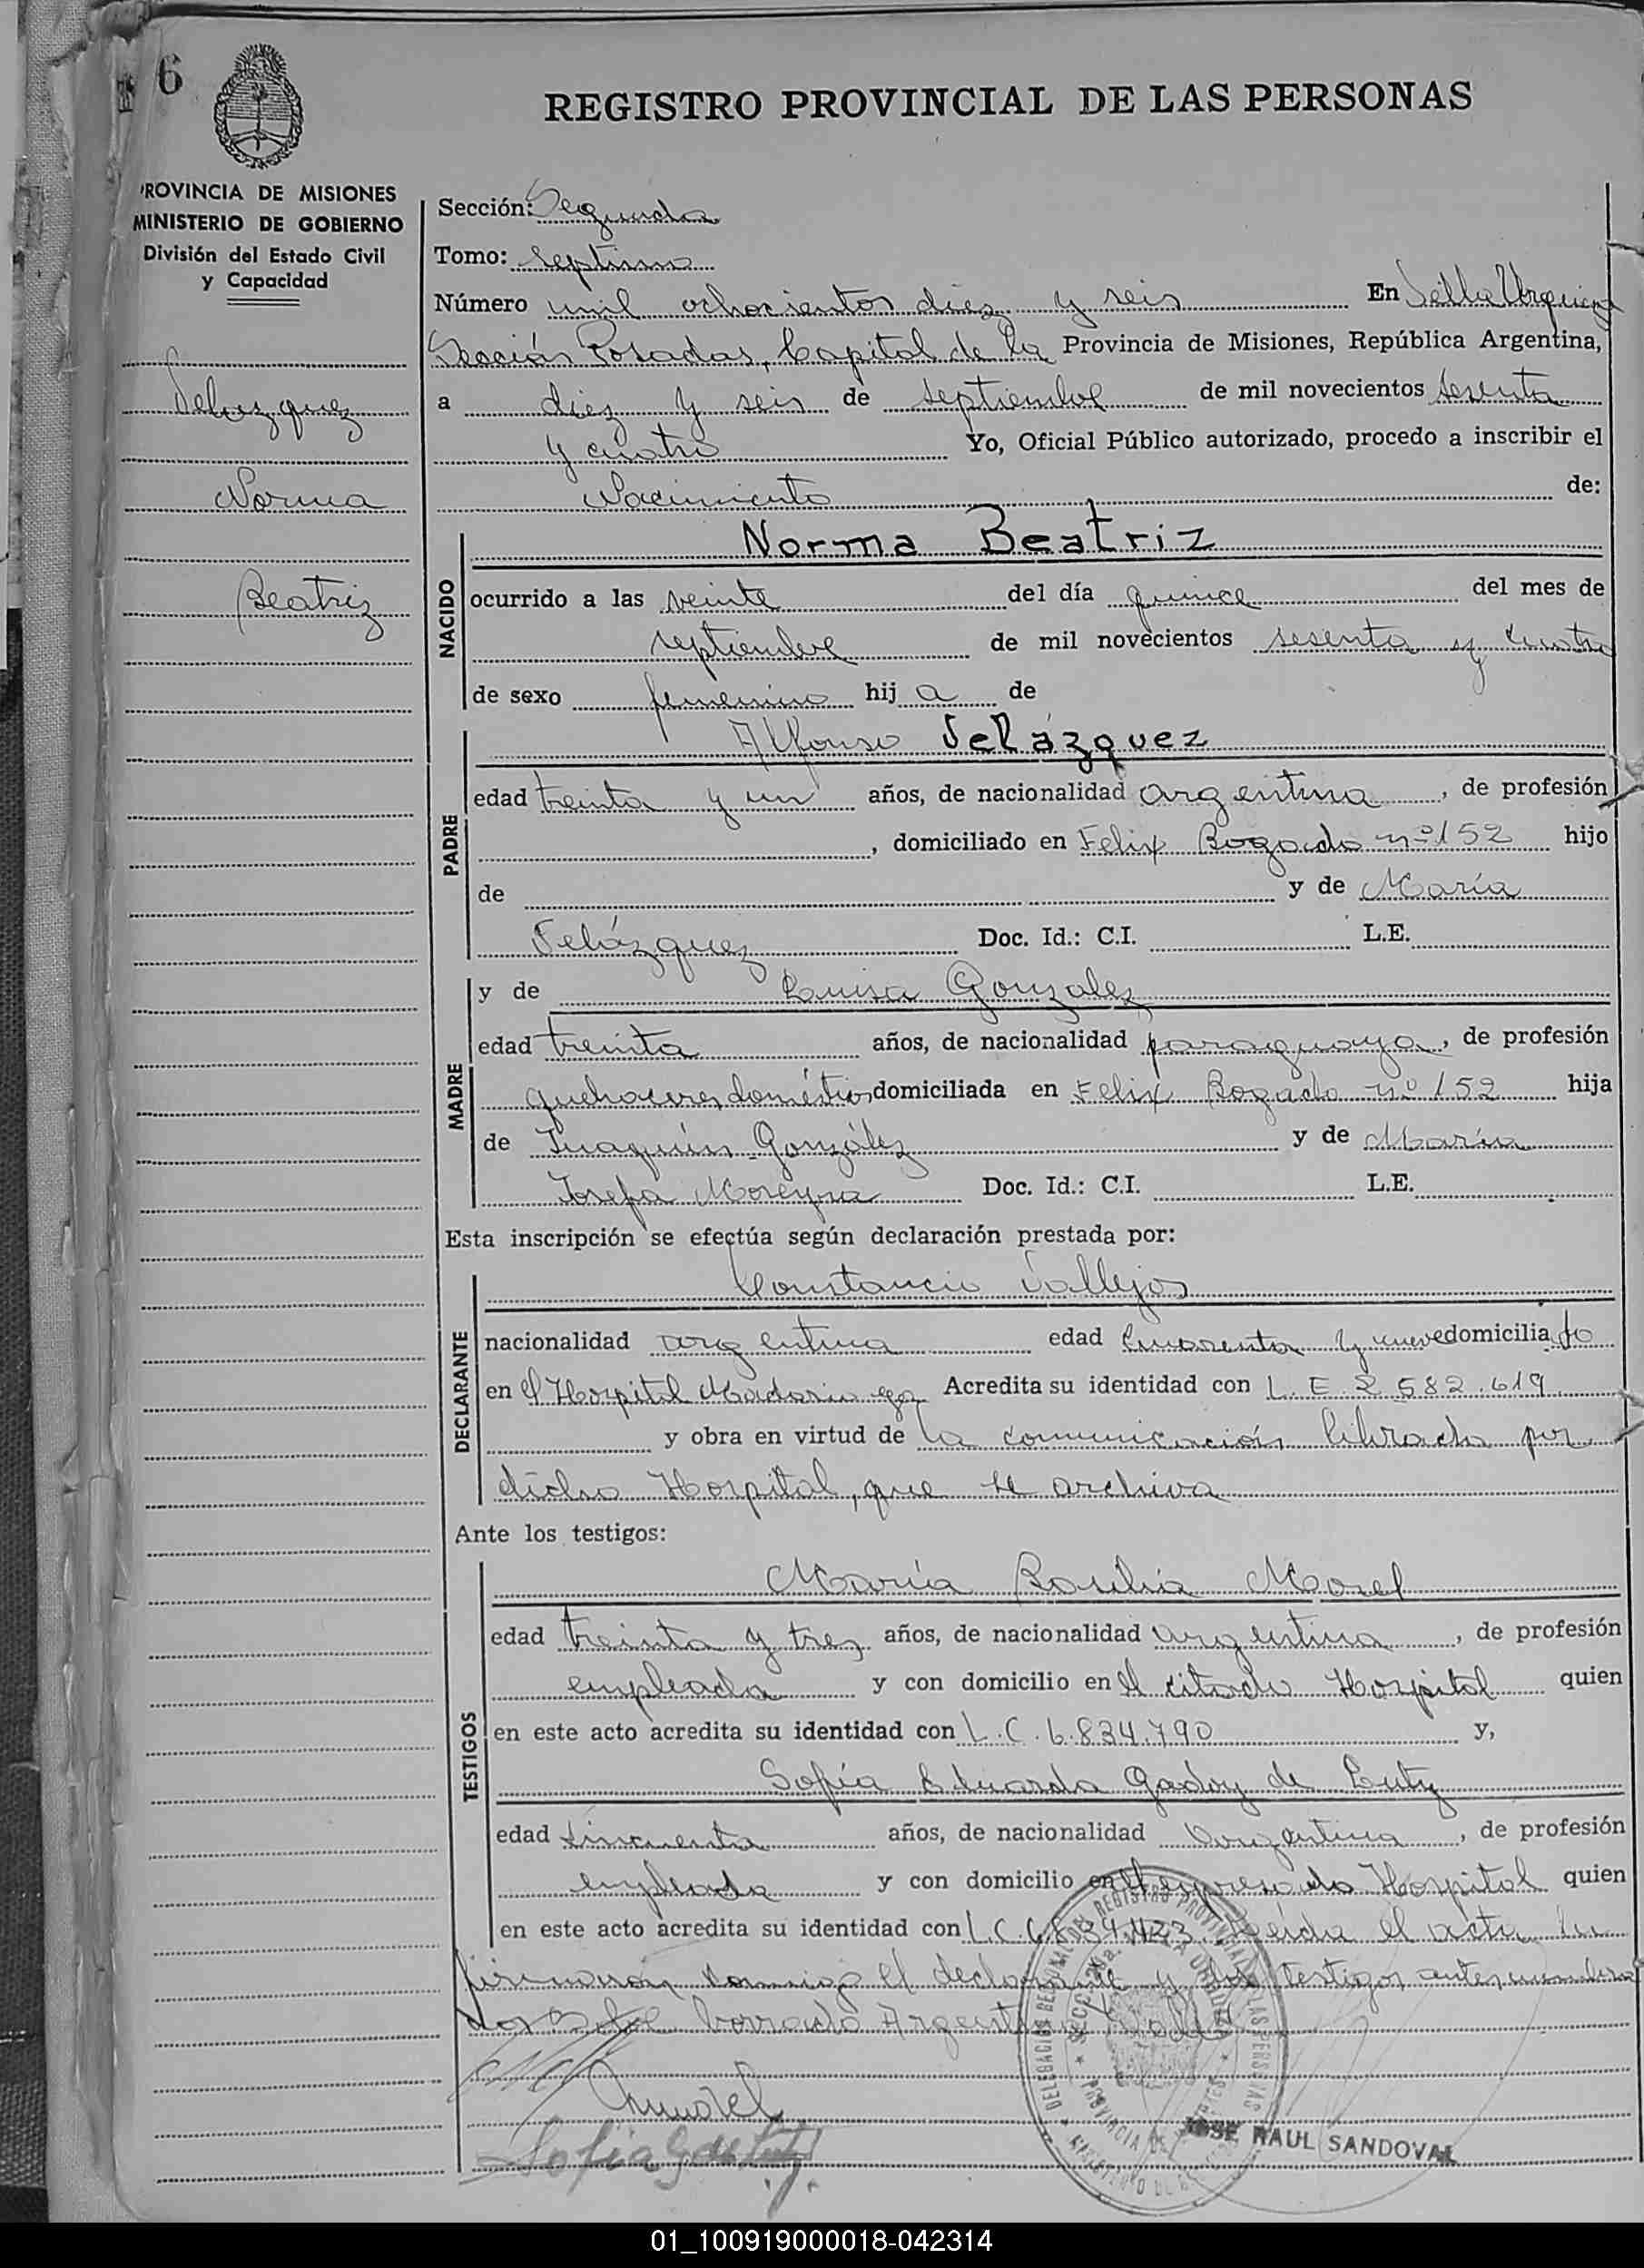 6
REGISTRO PROVINCIAL DE LAS PERSONAS
PROVINCIA DE MISIONES
MINISTERIO DE GOBIERNO
División del Estado Civil
y Capacidad
Velazquez
Norma
Beatriz
Sección: Segunda
Tomo: Septimo
Número mil ochocientos diez y seis En Villa Urquiza
Sección Posadas, Capital de la Provincia de Misiones, República Argentina,
a diez y seis de septiembre de mil novecientos sesenta
y cuatro Yo, Oficial Público autorizado, procedo a inscribir el
Nacimiento de:
NACIDO
Norma Beatriz
ocurrido a las veinte del día quince del mes de
septiembre de mil novecientos sesenta y cuatro
de sexo femenino hija de
PADRE
Alfonso Velázquez
edad treinta y un años, de nacionalidad argentina, de profesión
, domiciliado en Felix Bogado nº 152 hijo
de y de María
Velázquez Doc. Id.: C.I. L.E.
MADRE
y de Luisa Gonzalez
edad treinta años, de nacionalidad paraguaya, de profesión
quehaceres domésticos domiciliada en Felix Bogado nº 152 hija
de Juaquín González y de María
Josefa Moreyra Doc. Id.: C.I. L.E.
Esta inscripción se efectúa según declaración prestada por:
DECLARANTE
Constancio Vallejos
nacionalidad argentina edad cuarenta y nueve domiciliado
en el Hospital Madariaga Acredita su identidad con L.E 2.582.619
y obra en virtud de la comunicación librada por
dicho Hospital, que se archiva
Ante los testigos:
TESTIGOS
María Rosilia Morel
edad treinta y tres años, de nacionalidad argentina, de profesión
empleada y con domicilio en el citado Hospital quien
en este acto acredita su identidad con L.C. 6.834.790 y,
Sofía Eduarda Godoy de Luty
edad cincuenta años, de nacionalidad argentina, de profesión
empleada y con domicilio en el expresado Hospital quien
en este acto acredita su identidad con L.C. Leida el acta la
firmaron conmigo el declarante y los testigos antes nombra
dos borrado Argentina Vale
Mmorel
Sofia G de Luty
JOSE RAUL SANDOVAL
01_100919000018-042314